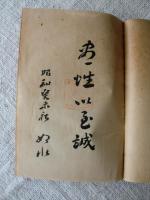 盡性以至誠
昭和癸未秋